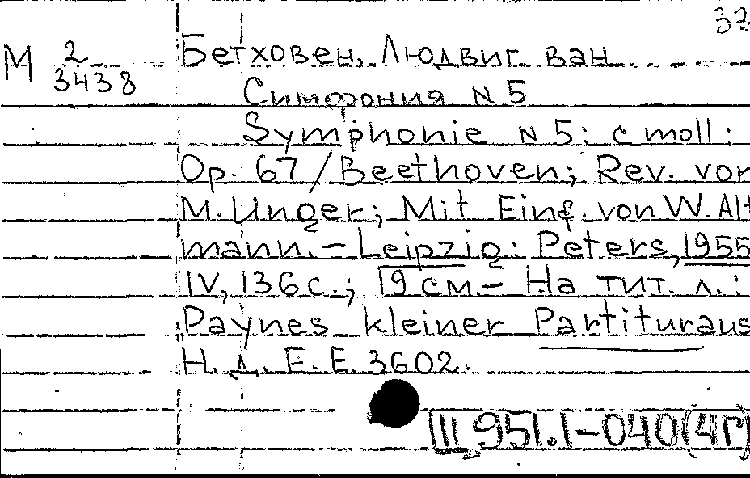 37
М 2 Бетховен, Людвиг ван
3438
Симфония N 5
Symphonie N 5: c moll:
Op. 67 / Beethoven; Rev. von
M. Unger; Mit Einf. von W. Alt
mann. – Leipzig: Peters, 1955
IV, 136 с.; 19 см. – На тит. л.:
Paynes kleiner Partituraus
Н. д. Е. Е. 3602.
III 951.1-040(4Г)